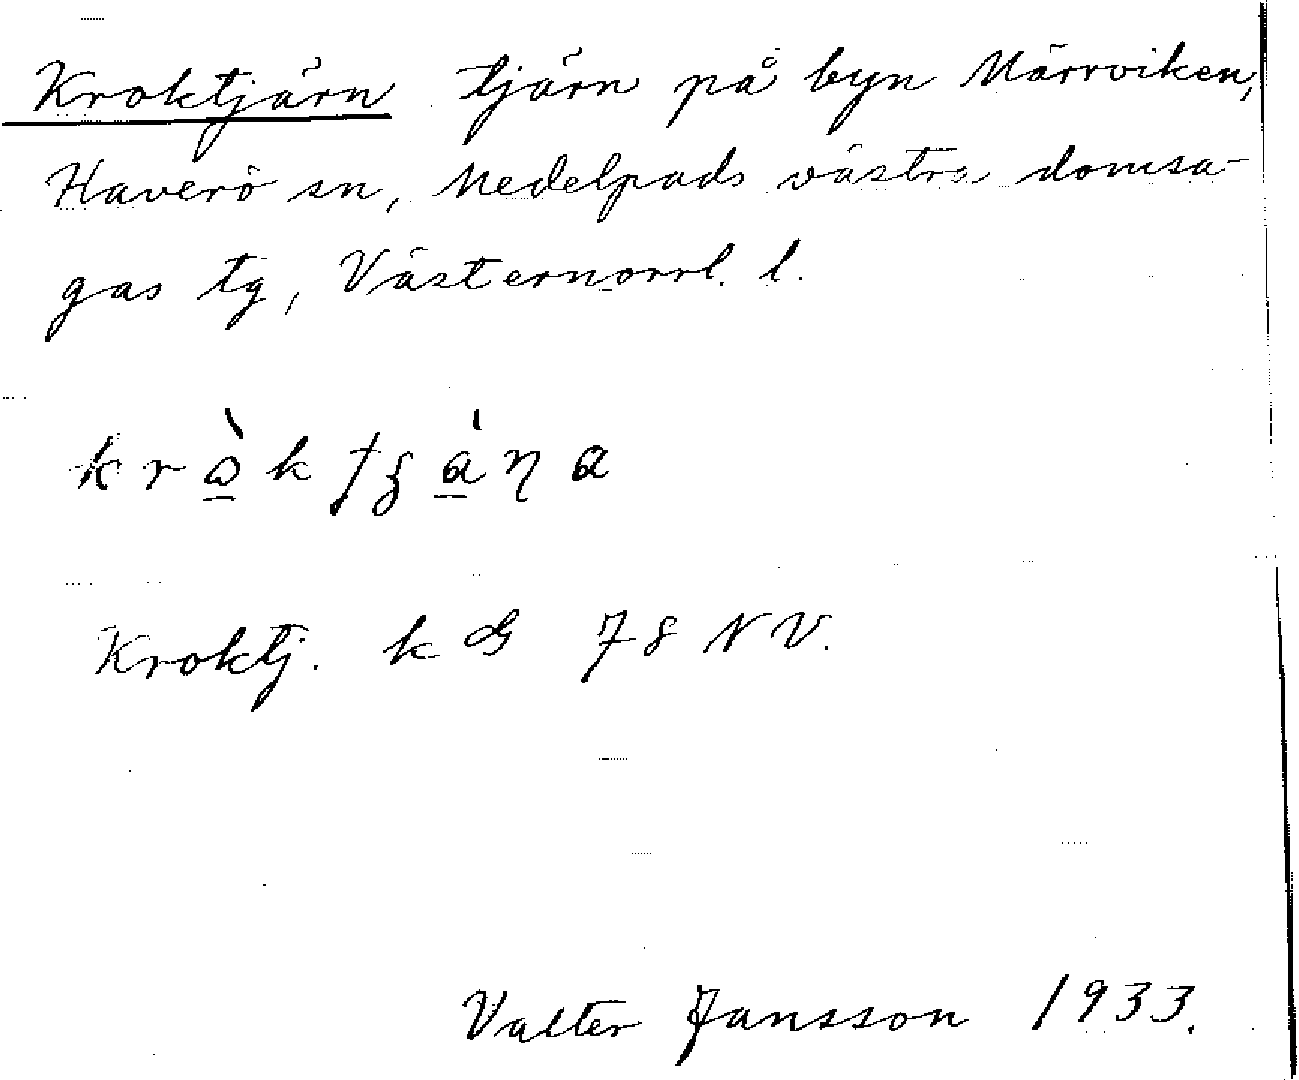 Kroktjärn tjärn på byn Märrviken,
Haverö sn, Medelpads västra domsa-
gas tg, Västernorrl. l.
Kroktj. k G 78 NV.
Valter Jansson 1933.